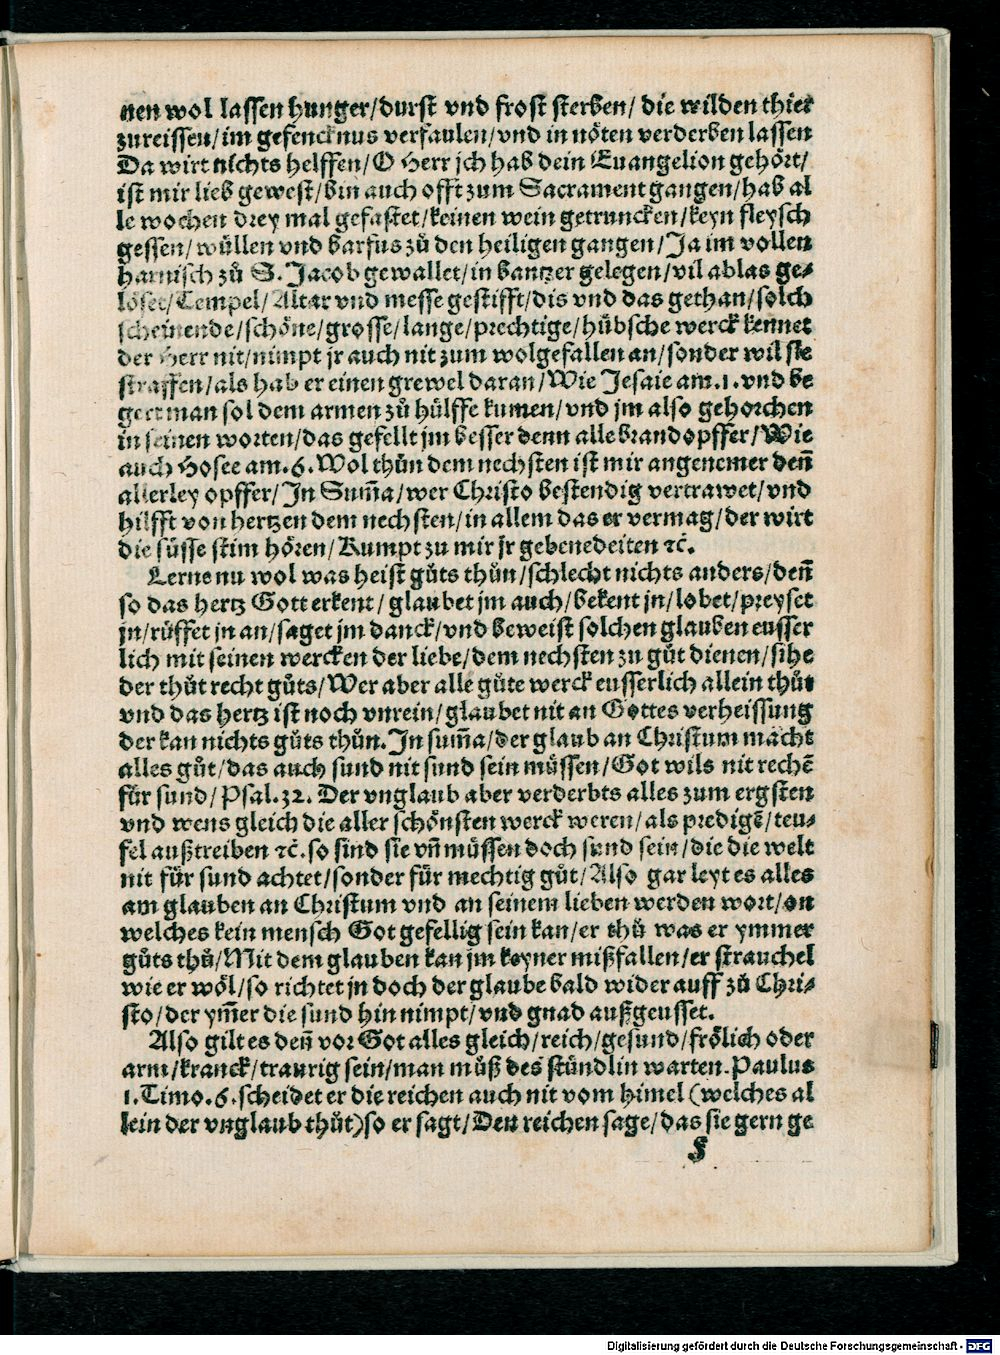 nen wol lassen hunger/durst vnd frost sterben/ die wilden thier
zureissen/im gefencknus verfaulen/vnd in nöten verderben lassen
Da wirt nichts helffen/O Herr jch hab dein Euangelion gehört/
ist mir lieb gewest/bin auch offt zum Sacrament gangen/hab al
le wochen drey mal gefastet/keinen wein getruncken/keyn fleysch
gessen/wüllen vnd barfus zů den heiligen gangen/Ja im vollen
harnisch zů S. Jacob gewallet/in bantzer gelegen/vil ablas ge⸗
löset/Tempel/Altar vnd messe gestifft/dis vnd das gethan/solch
scheinende/schöne/grosse/lange/prechtige/hübsche werck kennet
der Herr nit/nimpt jr auch nit zum wolgefallen an/sonder wil sie
straffen/als hab er einen grewel daran/Wie Jesaie am.1.vnd be
geert man sol dem armen zů hülffe kumen/vnd jm also gehorchen
in seinen worten/das gefellt jm besser denn alle brandopffer/Wie
auch Hosee am.6.Wol thůn dem nechsten ist mir angenemer deñ
allerley opffer/In Sum̃a/wer Christo bestendig vertrawet/vnd
hilfft von hertzen dem nechsten/in allem das er vermag/der wirt
die süsse stim hören/Kumpt zu mir jr gebenedeiten ꝛc̃.
Lerne nu wol was heist gůts thůn/schlecht nichts anders/deñ
so das hertz Gott erkent/ glaubet jm auch/bekent jn/lobet/preyset
jn/růffet jn an/saget jm danck/vnd beweist solchen glauben eusser
lich mit seinen wercken der liebe/dem nechsten zu gůt dienen/sihe
der thůt recht gůts/Wer aber alle gůte werck eusserlich allein thůt
vnd das hertz ist noch vnrein/glaubet nit an Gottes verheissung
der kan nichts gůts thůn.In sum̃a/der glaub an Christum macht
alles gůt/das auch sund nit sund sein müssen/Got wils nit rechẽ
für sund/Psal.32. Der vnglaub aber verderbts alles zum ergsten
vnd wens gleich die aller schönsten werck weren/als predigẽ/teu⸗
fel außtreiben ꝛc̃.so sind sie vñ müssen doch sund sein/die die welt
nit für sund achtet/sonder für mechtig gůt/Also gar leyt es alles
am glauben an Christum vnd an seinem lieben werden wort/on
welches kein mensch Got gefellig sein kan/er thů was er ymmer
gůts thů/Mit dem glauben kan jm keyner mißfallen/er strauchel
wie er wöl/so richtet jn doch der glaube bald wider auff zů Chri⸗
sto/der ym̃er die sund hin nimpt/vnd gnad außgeusset.
Also gilt es deñ vor Got alles gleich/reich/gesund/frölich oder
arm/kranck/traurig sein/man můß des stündlin warten.Paulus
1.Timo.6.scheidet er die reichen auch nit vom himel (welches al
lein der vnglaub thůt)so er sagt/Den reichen sage/das sie gern ge
F
Digitalisierung gefördert durch die Deutsche Forschungsgemeinschaft - DFG